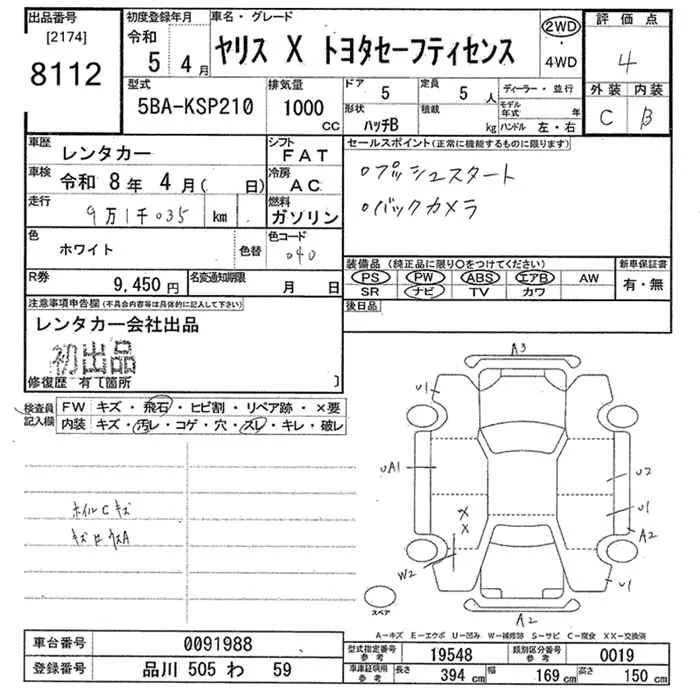 出品番号
[2174]
8112
初度登録年月
令和
5 4月
車名・グレード
ヤリス X トヨタセーフティセンス
2WD
・
4WD
評価点
4
外装 内装
C B
型式
5BA-KSP210
排気量
1000
CC
ドア 5
形状 ハッチB
定員 5人
積載 kg
ディーラー・並行
モデル年式 年
ハンドル 左・右
車歴 レンタカー
シフト FAT
車検 令和 8年 4月( 日)
冷房 AC
走行 9万1千035 km
燃料 ガソリン
色 ホワイト
色替
色コード 040
R券 9,450円
名変通知期限 月 日
セールスポイント(正常に機能するものに限ります)
○プッシュスタート
○バックカメラ
装備品(純正品に限り○をつけてください)
PS PW ABS エアB AW
SR ナビ TV カワ
新車保証書
有・無
後日品
注意事項申告欄(不具合内容等は具体的に記入して下さい)
レンタカー会社出品
初出品
修復歴 有〔箇所 〕
検査員記入欄
FW キズ・飛石・ヒビ割・リペア跡・×要
内装 キズ・汚レ・コゲ・穴・スレ・キレ・破レ
ホイルCキズ
A3
U1
UA1
U2
U1
A2
X
X
W2
U1
A2
スペア
A－キズ E－エクボ U－凹み W－補修跡 S－サビ C－腐食 XX－交換済
車台番号 0091988
登録番号 品川 505 わ 59
型式指定番号 参考 19548
類別区分番号 参考 0019
車庫証明用 参考 長さ 394 cm 幅 169 cm 高さ 150 cm